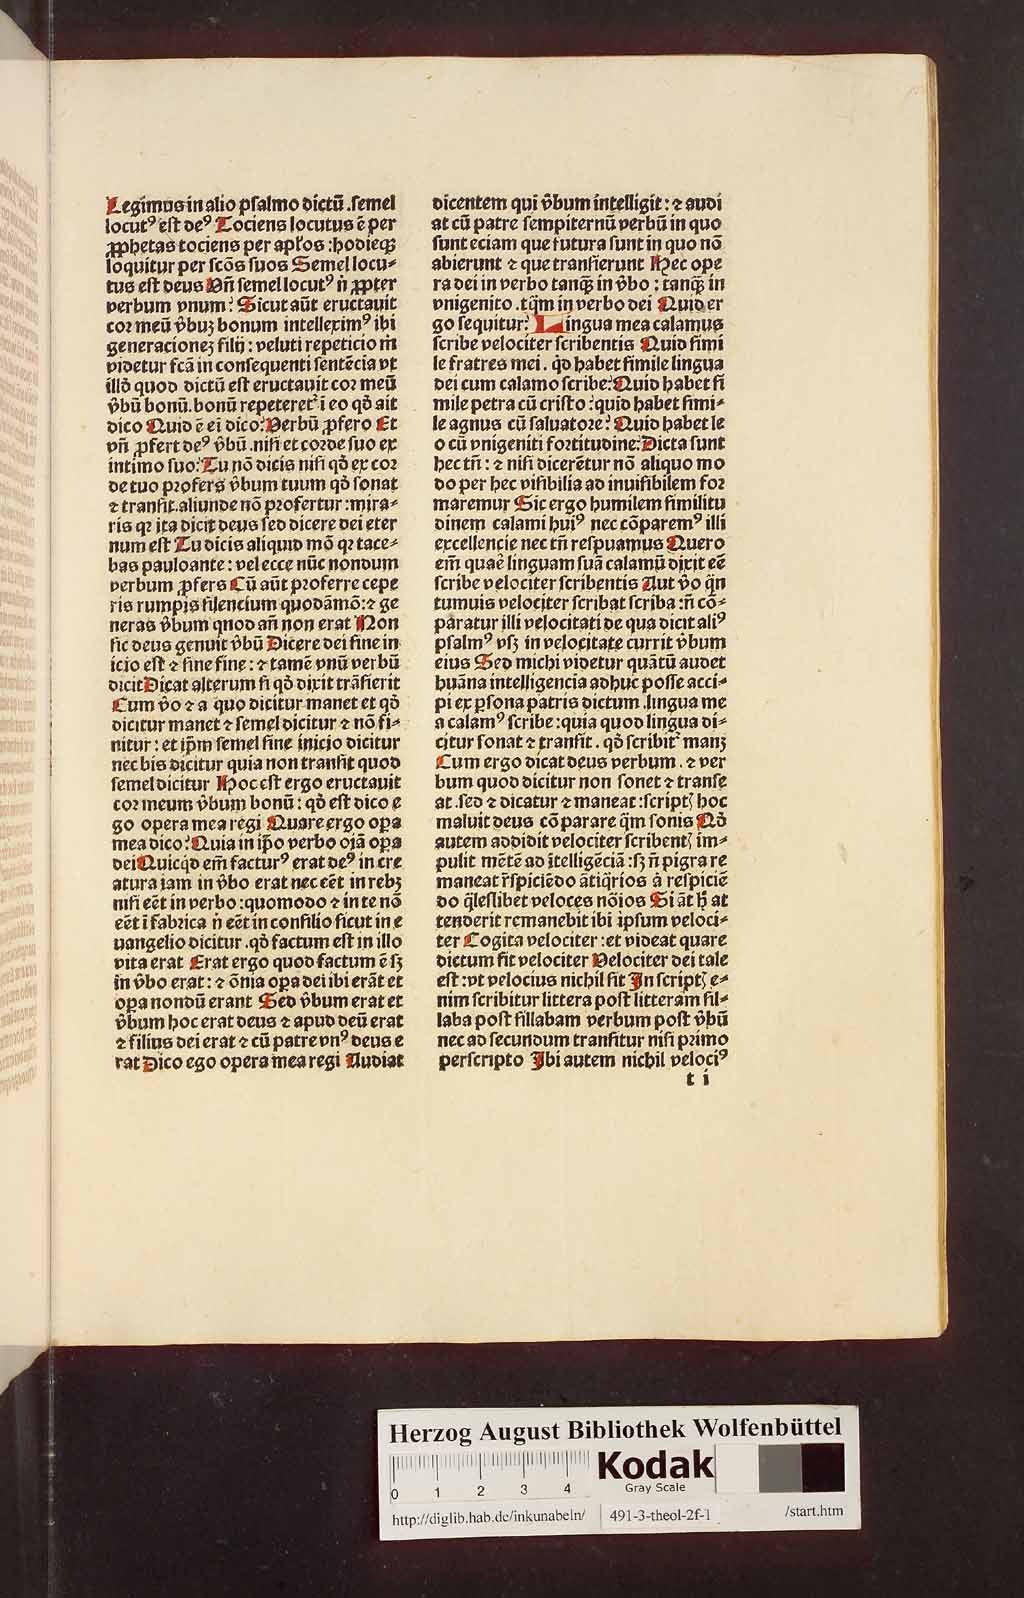 Legimus in alio psalmo dictū .semel
locutꝰ est deꝰ Tociens locutus ē per
ꝓphetas tociens per apłos : hodieqꝫ
loquitur per scōs suos Semel locu-
tus est deus Vñ semel locutꝰ ṅ ꝓpter
verbum vnum: Sicut aūt eructauit
cor meū v̄buꝫ bonum intelleximꝰ ibi
generacioneꝫ filij : veluti repeticio m̄
videtur fcā in consequenti sentēcia vt
illō quod dictū est eructauit cor meū
v̄bū bonū. bonū repeteret᷑ ī eo qđ ait
dico Quid ē eī dico: Verbū ꝓfero Et
vñ ꝓfert deꝰ v̄bū .nisi et corde suo ex
intimo suo: Tu nō dicis nisi qđ ex cor
de tuo profers v̄bum tuum qđ sonat
⁊ transit. aliunde nō profertur : mira-
ris qr ita dicit deus sed dicere dei eter
num est Tu dicis aliquid mō qr tace-
bas pauloante : vel ecce nūc nondum
verbum ꝓfers Cū aūt proferre cepe
ris rumpis silencium quodāmō: ⁊ ge
neras v̄bum qnod añ non erat Non
sic deus genuit v̄bū Dicere dei sine in
icio est ⁊ sine fine : ⁊ tamē vnū verbū
dicit Dicat alterum si qđ dixit trāsierit
Cum v̄o ⁊ a quo dicitur manet et qđ
dicitur manet ⁊ semel dicitur ⁊ nō fi-
nitur : et ip̄m semel sine inicio dicitur
nec bis dicitur quia non transit quod
semel dicitur Hoc est ergo eructauit
cor meum v̄bum bonū : qđ est dico e
go opera mea regi Quare ergo oꝑa
mea dico: Quia in ip̄o verbo oīā oꝑa
dei Quicqđ em̄ facturꝰ erat deꝰ in cre
atura iam in v̄bo erat nec eēt in rebꝫ
nisi eēt in verbo : quomodo ⁊ in te nō
eēt ī fabrica ṅ eēt in consilio sicut in e
uangelio dicitur .qđ factum est in illo
vita erat Erat ergo quod factum ē sꝫ
in v̄bo erat : ⁊ ōnia oꝑa dei ibi erāt et
oꝑa nondū erant Sed v̄bum erat et
v̄bum hoc erat deus ⁊ apud deū erat
⁊ filius dei erat ⁊ cū patre vnꝰ deus e
rat Dico ego opera mea regi Audiat
dicentem qui v̄bum intelligit : ⁊ audi
at cū patre sempiternū verbū in quo
sunt eciam que futura sunt in quo nō
abierunt ⁊ que transierunt Hec ope
ra dei in verbo tanqꝫ in v̄bo : tanqꝫ in
vnigenito .tq̄m in verbo dei Quid er
go sequitur: Lingua mea calamus
scribe velociter scribentis Quid simi
le fratres mei . qđ habet simile lingua
dei cum calamo scribe: Quid habet si
mile petra cū cristo : quid habet simi-
le agnus cū saluatore: Quid habet le
o cū vnigeniti fortitudine: Dicta sunt
hec tn̄ : ⁊ nisi dicerētur nō aliquo mo
do per hec visibilia ad inuisibilem for
maremur Sic ergo humilem similitu
dinem calami huiꝰ nec cōparemꝰ illi
excellencie nec tn̄ respuamus Quero
em̄ quare linguam suā calamū dixit eē
scribe velociter scribentis Aut v̄o q̄n
tumuis velociter scribat scriba : ñ cō-
paratur illi velocitati de qua dicit aliꝰ
psalmꝰ vsꝫ in velocitate currit v̄bum
eius Sed michi videtur quātū audet
huāna intelligencia adhuc posse acci-
pi ex ꝑsona patris dictum .lingua me
a calamꝰ scribe : quia quod lingua di-
citur sonat ⁊ transit . qđ scribit᷑ manꝫ
Cum ergo dicat deus verbum . ⁊ ver
bum quod dicitur non sonet ⁊ transe
at .sed ⁊ dicatur ⁊ maneat : scriptꝭ hoc
maluit deus cō parare q̄m sonis Qđ
autem addidit velociter scribentꝭ im-
pulit mētē ad ītelligēciā : sꝫ ñ pigra re
maneat
tenderit remanebit ibi ipsum veloci-
ter Cogita velociter : et videat quare
dictum sit velociter Velociter dei tale
est : vt velocius nichil sit In scriptꝭ e-
nim scribitur littera post litteram sil-
laba post sillabam verbum post v̄bū
nec ad secundum transitur nisi primo
perscripto Ibi autem nichil velociꝰ
t i
Herzog August Bibliothek Wolfenbüttel
0 1 2 3 4
Kodak
Gray Scale
http://diglib.hab.de/inkunabeln/ 491-3-theol-2f-1 /start.htm